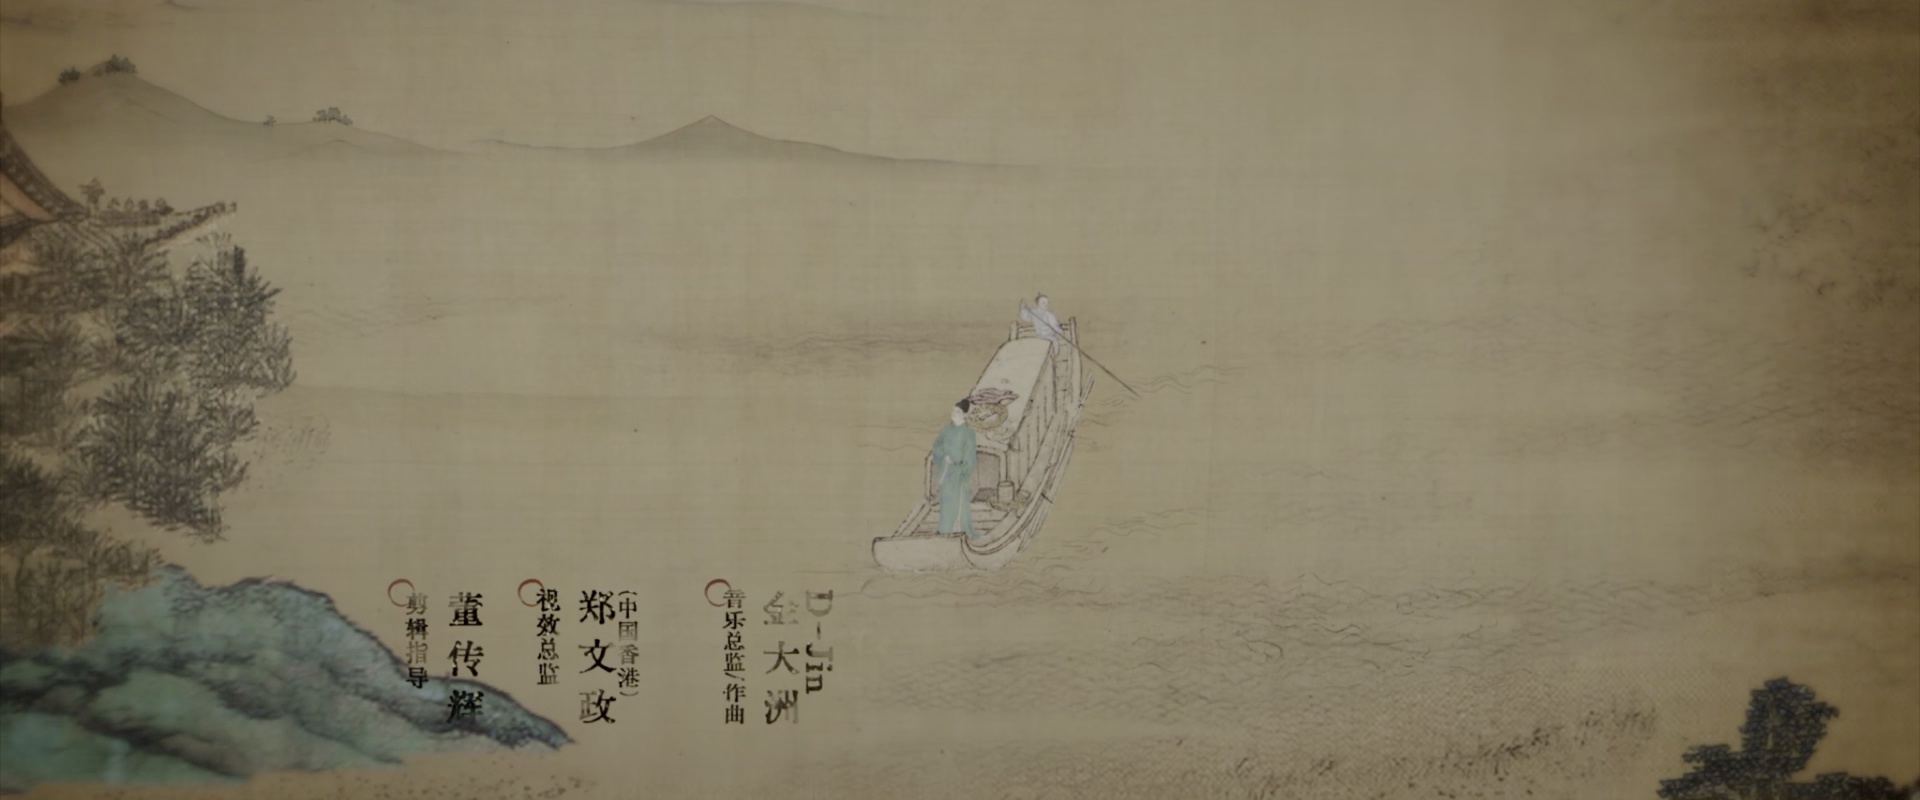 D-Jin
金大洲
音乐总监/作曲
(中国香港)
郑文政
视效总监
董传辉
剪辑指导